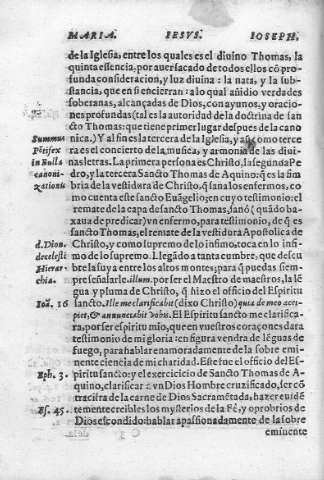 MARIA. IESVS. IOSEPH.
de la Iglesia, entre los quales es el diuino Thomas, la
quinta essencia, por auer sacado de todos ellos cõ pro-
funda consideracion, y luz diuina: la nata, y la sub-
stancia, que en si encierran: a lo qual añidio verdades
soberanas, alcançadas de Dios, con ayunos, y oracio-
nes profundas (tal es la autoridad de la doctrina de san
cto Thomas: que tiene primer lugar despues de la cano
Summus nica.) Y al fin es la tercera de la Iglesia, y assi como terce
Põtifex ra es el concierto de la musica, y armonia de las diui-
in Bulla nas letras. La primera persona es Christo, la segunda Pe
canoni- dro, y la tercera Sancto Thomas de Aquino: q̃ es la fim
zationis bria de la vestidura de Christo, q̃ sana los enfermos, co
mo cuenta este sancto Euãgelio; en cuyo testimonio: el
remate de la capa de sancto Thomas, sanó (quãdo ba-
xaua de predicar) vn enfermo, para testimonio, de q̃ es
sancto Thomas, el remate de la vestidura Apostolica de
d. Dion. Christo, y como supremo de lo infimo, toca en lo infi-
de celesti mo de lo supremo. Llegado a tanta cumbre, que descu
Hierar- bre la suya entre los altos montes; para q̃ puedas siem-
chia. pre señalarle. illum. por ser el Maestro de maestros, la lẽ
gua y pluma de Christo, q̃ hizo el officio del Espiritu
Ioã. 16 sancto. Ille me clarificabit (dixo Christo) quia de meo acci-
piet, & annunciabit vobis. El Espiritu sancto me clarifica-
ra, por ser espiritu mio, que en vuestros coraçones dara
testimonio de mi gloria: en figura vendra de lẽguas de
fuego, para hablar enamoradamente de la sobre emi-
nente ciencia de mi charidad. Este fue el officio del Es-
Eph. 3. piritu sancto: y el exercicio de Sancto Thomas de A-
quino, clarificar a vn Dios Hombre cruzificado, ser cõ
tracifra de la carne de Dios Sacramẽtada, hazer euidẽ
Es. 45. temente creibles los mysterios de la Fé, y oprobrios de
Dios escondido: hablar apassionadamente de la sobre
eminente